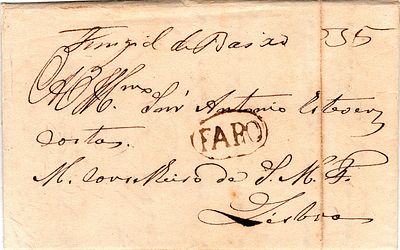 de Baixo 235
Illmo. Snr. Antonio Esteves
Costa.
FARO
M. Conselheiro de S. M. F.
Lisboa